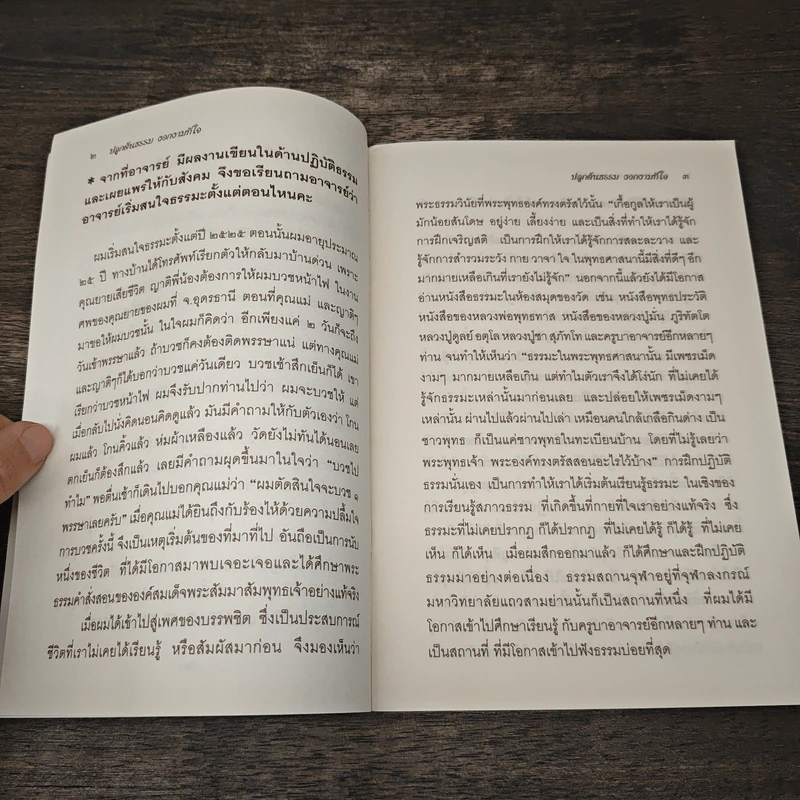 ๒ ปลูกต้นธรรม งอกงามที่ใจ
* จากที่อาจารย์ มีผลงานเขียนในด้านปฏิบัติธรรม
และเผยแพร่ให้กับสังคม จึงขอเรียนถามอาจารย์ว่า
อาจารย์เริ่มสนใจธรรมะตั้งแต่ตอนไหนคะ
ผมเริ่มสนใจธรรมะตั้งแต่ปี ๒๕๒๕ ตอนนั้นผมอายุประมาณ
๒๕ ปี ทางบ้านได้โทรศัพท์เรียกตัวให้กลับมาบ้านด่วน เพราะ
คุณยายเสียชีวิต ญาติพี่น้องต้องการให้ผมบวชหน้าไฟ ในงาน
ศพของคุณยายของผมที่ จ.อุดรธานี ตอนที่คุณแม่ และญาติๆ
มาขอให้ผมบวชนั้น ในใจผมก็คิดว่า อีกเพียงแค่ ๒ วันก็จะถึง
วันเข้าพรรษาแล้ว ถ้าบวชก็คงต้องติดพรรษาแน่ แต่ทางคุณแม่
และญาติๆก็ได้บอกว่าบวชแค่วันเดียว บวชเช้าสึกเย็นก็ได้ เขา
เรียกว่าบวชหน้าไฟ ผมจึงรับปากท่านไปว่า ผมจะบวชให้ แต่
เมื่อกลับไปนั่งคิดนอนคิดดูแล้ว มันมีคำถามให้กับตัวเองว่า โกน
ผมแล้ว โกนคิ้วแล้ว ห่มผ้าเหลืองแล้ว วัดยังไม่ทันได้นอนเลย
ตกเย็นก็ต้องสึกแล้ว เลยมีคำถามผุดขึ้นมาในใจว่า “บวชไป
ทำไม” พอตื่นเช้าก็เดินไปบอกคุณแม่ว่า “ผมตัดสินใจจะบวช ๑
พรรษาเลยครับ” เมื่อคุณแม่ได้ยินถึงกับร้องไห้ด้วยความปลื้มใจ
การบวชครั้งนี้ จึงเป็นเหตุเริ่มต้นของที่มาที่ไป อันถือเป็นการนับ
หนึ่งของชีวิต ที่ได้มีโอกาสมาพบเจอะเจอและได้ศึกษาพระ
ธรรมคำสั่งสอนขององค์สมเด็จพระสัมมาสัมพุทธเจ้าอย่างแท้จริง
เมื่อผมได้เข้าไปสู่เพศของบรรพชิต ซึ่งเป็นประสบการณ์
ชีวิตที่เราไม่เคยได้เรียนรู้ หรือสัมผัสมาก่อน จึงมองเห็นว่า
ปลูกต้นธรรม งอกงามที่ใจ ๓
พระธรรมวินัยที่พระพุทธองค์ทรงตรัสไว้นั้น “เกื้อกูลให้เราเป็นผู้
มักน้อยสันโดษ อยู่ง่าย เลี้ยงง่าย และเป็นสิ่งที่ทำให้เราได้รู้จัก
การฝึกเจริญสติ เป็นการฝึกให้เราได้รู้จักการสละละวาง และ
รู้จักการสำรวมระวัง กาย วาจา ใจ ในพุทธศาสนานี้มีสิ่งที่ดีๆ อีก
มากมายเหลือเกินที่เรายังไม่รู้จัก” นอกจากนี้แล้วยังได้มีโอกาส
อ่านหนังสือธรรมะในห้องสมุดของวัด เช่น หนังสือพุทธประวัติ
หนังสือของหลวงพ่อพุทธทาส หนังสือของหลวงปู่มั่น ภูริทัตโต
หลวงปู่ดูลย์ อตุโล หลวงปู่ชา สุภัทโท และครูบาอาจารย์อีกหลายๆ
ท่าน จนทำให้เห็นว่า “ธรรมะในพระพุทธศาสนานั้น มีเพชรเม็ด
งามๆ มากมายเหลือเกิน แต่ทำไมตัวเราจึงได้โง่นัก ที่ไม่เคยได้
รู้จักธรรมะเหล่านั้นมาก่อนเลย และปล่อยให้เพชรเม็ดงามๆ
เหล่านั้น ผ่านไปแล้วผ่านไปเล่า เหมือนคนใกล้เกลือกินด่าง เป็น
ชาวพุทธ ก็เป็นแค่ชาวพุทธในทะเบียนบ้าน โดยที่ไม่รู้เลยว่า
พระพุทธเจ้า พระองค์ทรงตรัสสอนอะไรไว้บ้าง” การฝึกปฏิบัติ
ธรรมนั่นเอง เป็นการทำให้เราได้เริ่มต้นเรียนรู้ธรรมะ ในเชิงของ
การเรียนรู้สภาวธรรม ที่เกิดขึ้นที่กายที่ใจเราอย่างแท้จริง ซึ่ง
ธรรมะที่ไม่เคยปรากฏ ก็ได้ปรากฏ ที่ไม่เคยได้รู้ ก็ได้รู้ ที่ไม่เคย
เห็น ก็ได้เห็น เมื่อผมสึกออกมาแล้ว ก็ได้ศึกษาและฝึกปฏิบัติ
ธรรมมาอย่างต่อเนื่อง ธรรมสถานจุฬาอยู่ที่จุฬาลงกรณ์
มหาวิทยาลัยแถวสามย่านนั้นก็เป็นสถานที่หนึ่ง ที่ผมได้มี
โอกาสเข้าไปศึกษาเรียนรู้ กับครูบาอาจารย์อีกหลายๆ ท่าน และ
เป็นสถานที่ ที่มีโอกาสเข้าไปฟังธรรมบ่อยที่สุด